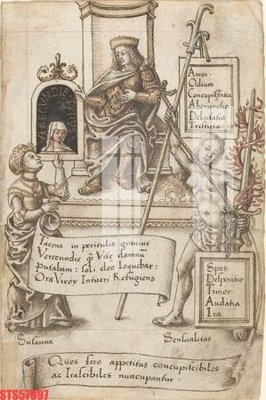 Amor
Odium
Concupiscentia
Abominatio
Delectatio
Tristitia
Iacens in periculis gravium
Verecundie qr Vite damnũ
Putabam: soli deo loquebar:
Ora Viroru Intueri Refugiens
Spes
Desperatio
Timor
Audatia
Ira
Susanna
Sensualitas
Quos fero appetitus concupiscibiles
ac Irascibiles nuncupantur
STS57097